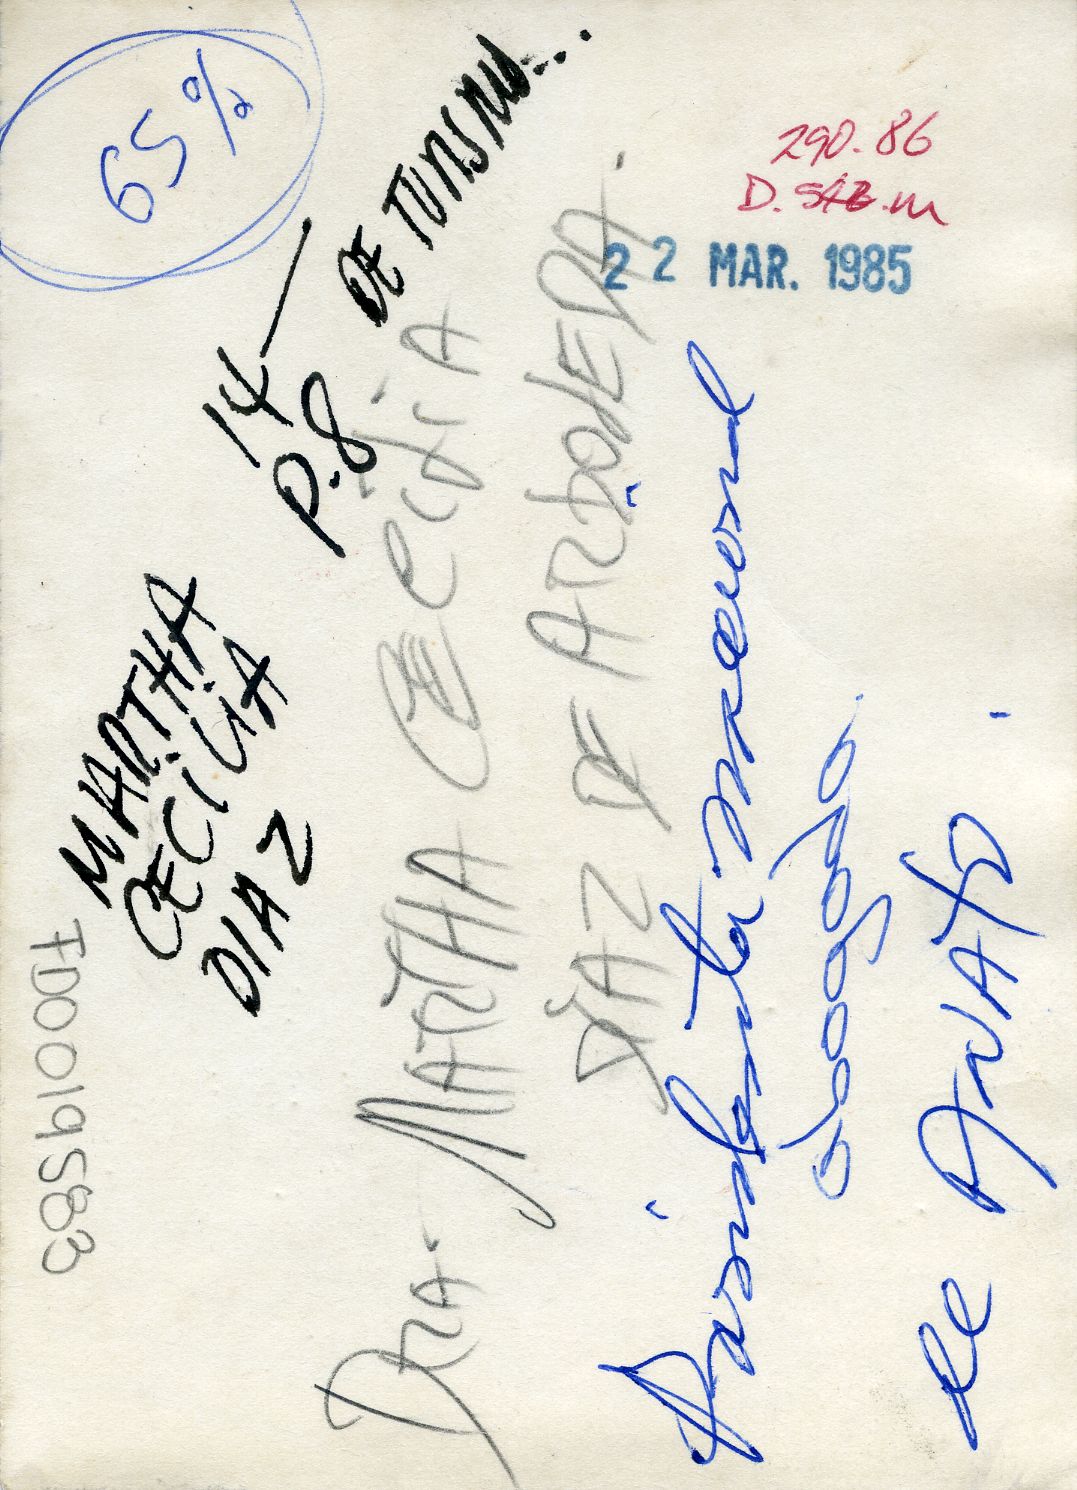 65%
14
P.8
DE TURISMO...
290.86
D. SAB.M
22 MAR. 1985
MARTHA
CECILIA
DIAZ
FD0019583
Dra. MARTHA CECILIA
DÍAZ DE ARBOLEDA.
Presidenta nacional
abogado.
de ANATO